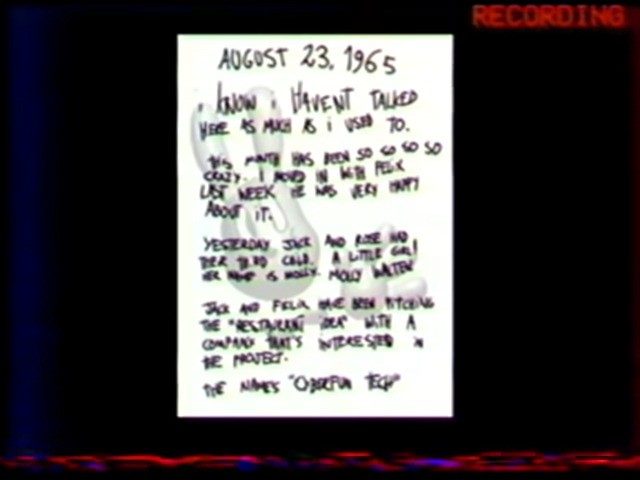 RECORDING
AUGUST 23, 1965
I KNOW I HAVEN'T TALKED
HERE AS MUCH AS I USED TO.
THIS MONTH HAS BEEN SO SO SO SO
CRAZY. I MOVED IN WITH FELIX
LAST WEEK HE WAS VERY HAPPY
ABOUT IT.
YESTERDAY JACK AND ROSE HAD
THEIR THIRD CHILD. A LITTLE GIRL!
HER NAME IS MOLLY. MOLLY WALTEN
JACK AND FELIX HAVE BEEN PITCHING
THE "RESTAURANT IDEA" WITH A
COMPANY THAT'S INTERESTED IN
THE PROJECT.
THE NAME'S "CYBERFUN TECH"